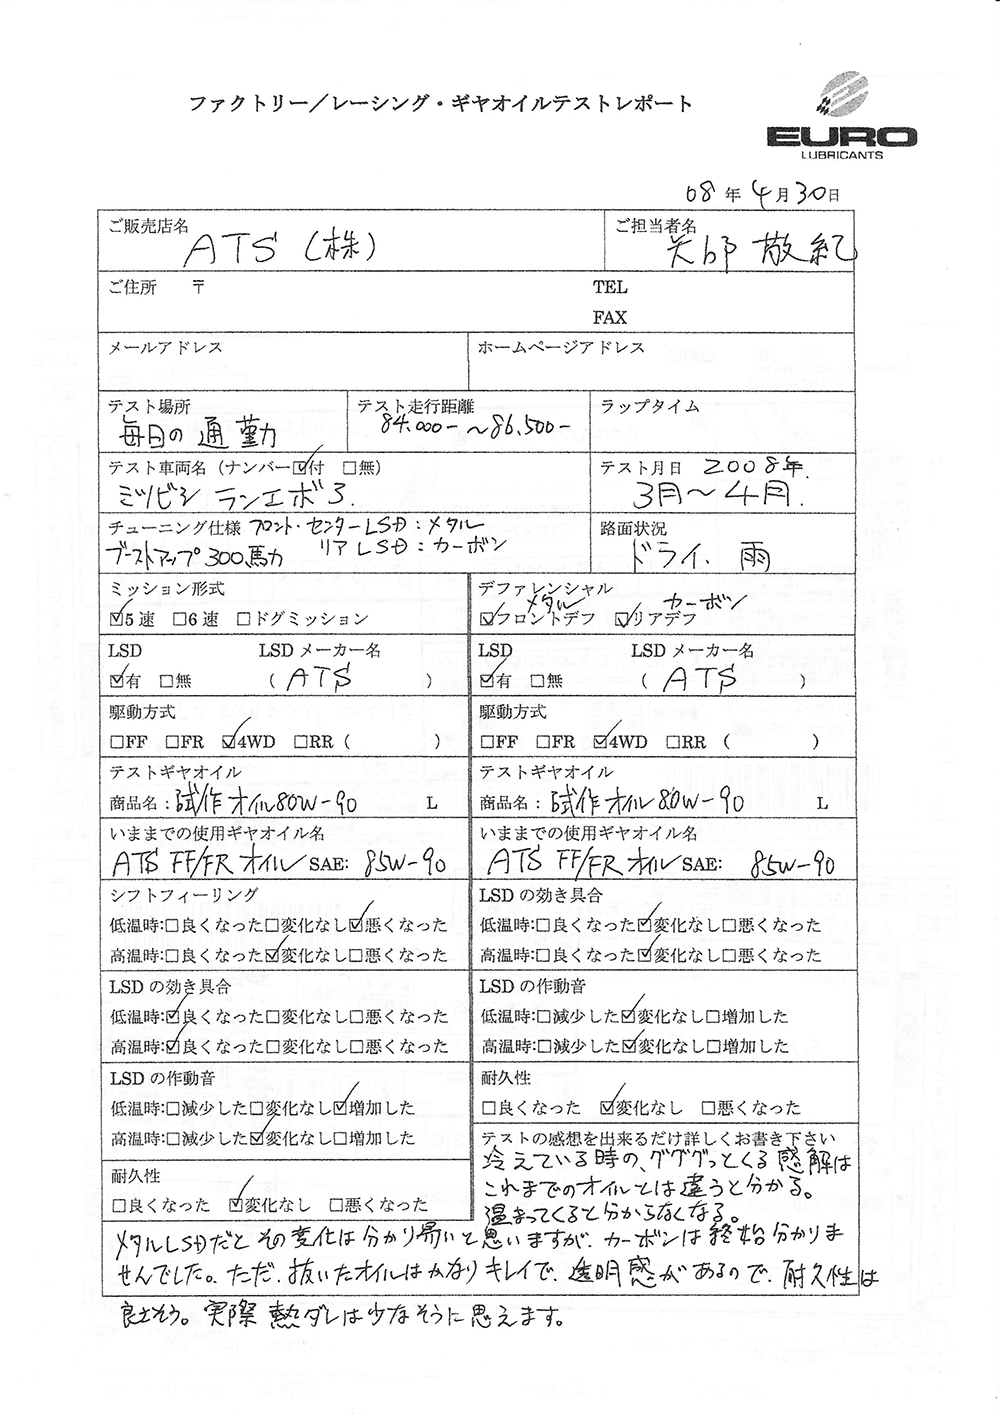 ファクトリー／レーシング・ギヤオイルテストレポート
EURO
LUBRICANTS
08年4月30日
ご販売店名
ATS（株）
ご担当者名
矢部 敬紀
ご住所 〒
TEL
FAX
メールアドレス
ホームページアドレス
テスト場所
毎日の通勤
テスト走行距離
84.000-～86.500-
ラップタイム
テスト車両名（ナンバー☑付 □無）
ミツビシ ランエボ3.
テスト月日 2008年.
3月～4月.
チューニング仕様 フロント・センターLSD：メタル
ブーストアップ300馬力 リアLSD：カーボン
路面状況
ドライ、雨
ミッション形式
☑5速 □6速 □ドグミッション
デファレンシャル
メタル カーボン
☑フロントデフ ☑リアデフ
LSD LSDメーカー名
☑有 □無 （ATS）
LSD LSDメーカー名
☑有 □無 （ATS）
駆動方式
□FF □FR ☑4WD □RR（ ）
駆動方式
□FF □FR ☑4WD □RR（ ）
テストギヤオイル
商品名：試作オイル80W-90 L
テストギヤオイル
商品名：試作オイル80W-90 L
いままでの使用ギヤオイル名
ATS FF/FRオイル SAE: 85W-90
いままでの使用ギヤオイル名
ATS FF/FRオイル SAE: 85W-90
シフトフィーリング
低温時:□良くなった□変化なし☑悪くなった
高温時:□良くなった☑変化なし□悪くなった
LSDの効き具合
低温時:□良くなった☑変化なし□悪くなった
高温時:□良くなった☑変化なし□悪くなった
LSDの効き具合
低温時:☑良くなった□変化なし□悪くなった
高温時:☑良くなった□変化なし□悪くなった
LSDの作動音
低温時:□減少した☑変化なし□増加した
高温時:□減少した☑変化なし□増加した
LSDの作動音
低温時:□減少した□変化なし☑増加した
高温時:□減少した☑変化なし□増加した
耐久性
□良くなった ☑変化なし □悪くなった
耐久性
□良くなった ☑変化なし □悪くなった
テストの感想を出来るだけ詳しくお書き下さい
冷えている時の、グググっとくる感解は
これまでのオイルとは違うと分かる。
温まってくると分からなくなる。
メタルLSDだとその変化は分かり易いと思いますが、カーボンは終始分かりま
せんでした。ただ、抜いたオイルはかなりキレイで、透明感があるので、耐久性は
良さそう。実際熱ダレは少なそうに思えます。